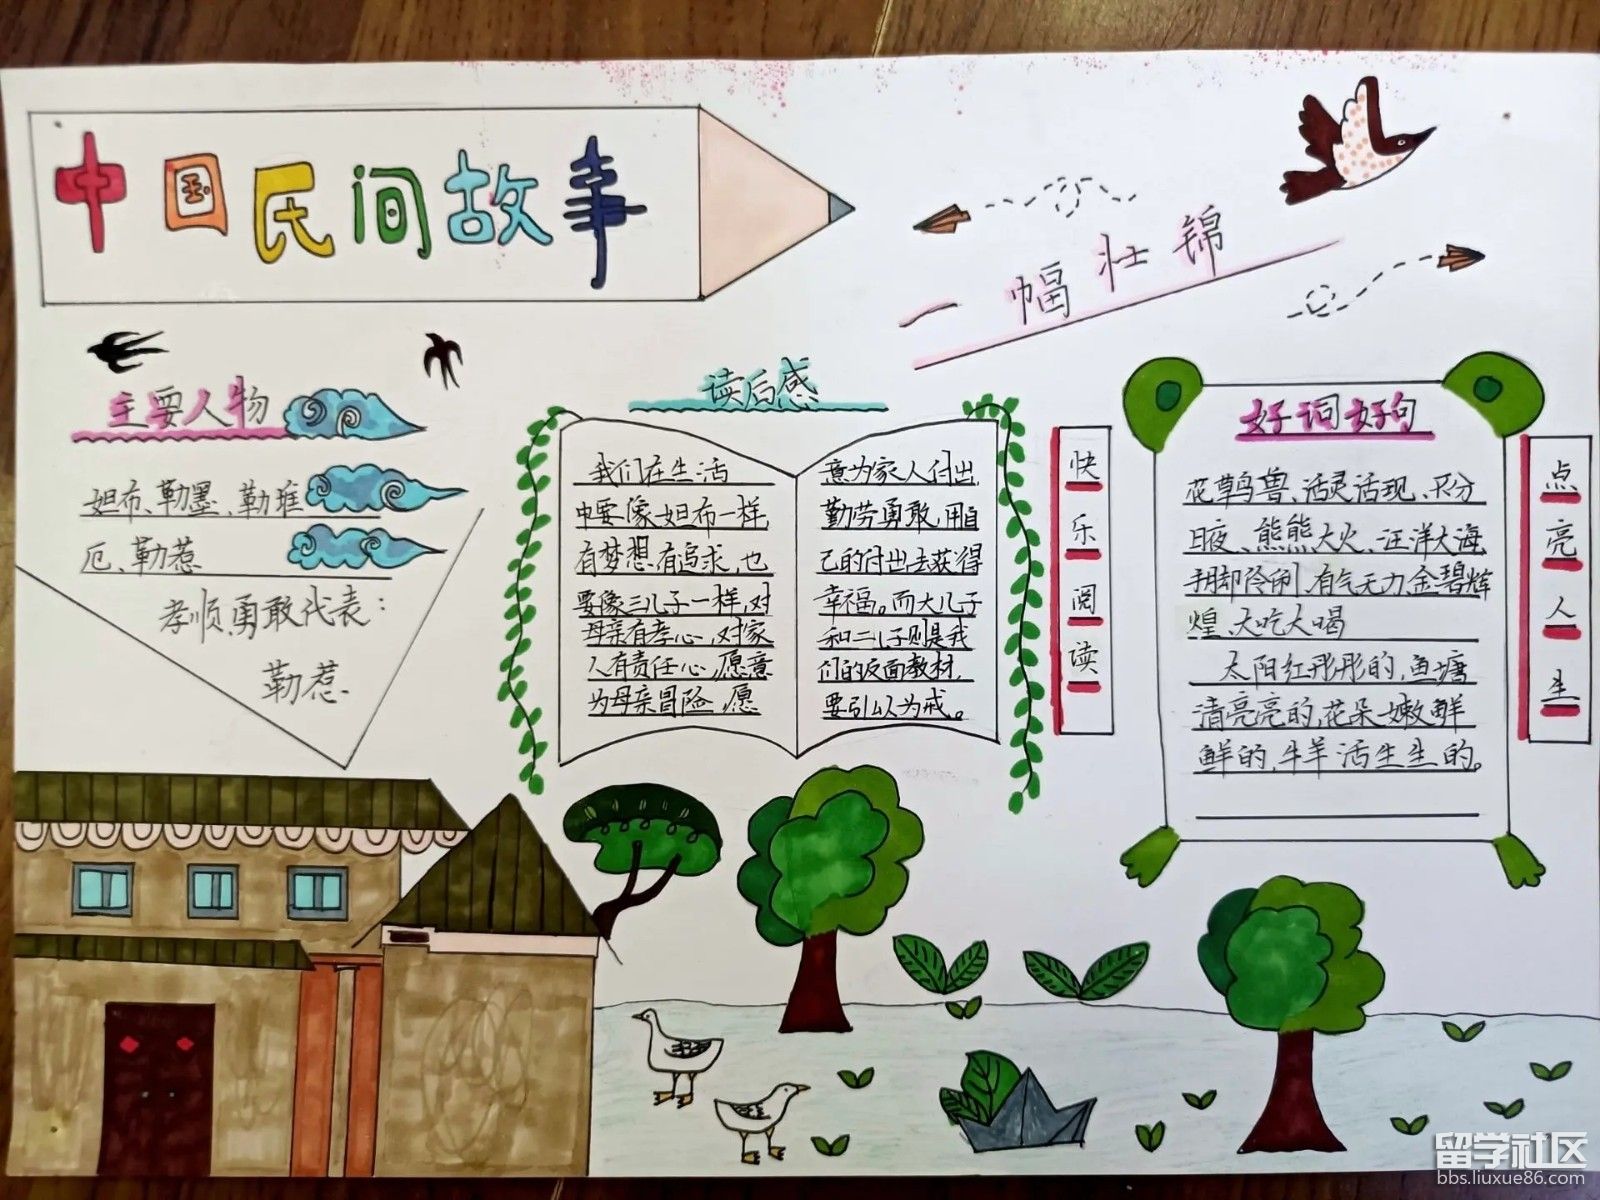 中国民间故事
一幅壮锦
主要人物
妲布、勒墨、勒堆
厄、勒惹
孝顺勇敢代表：
勒惹
读后感
我们在生活
中要像妲布一样,
有梦想有追求,也
要像三儿子一样,对
母亲有孝心,对家
人有责任心,愿意
为母亲冒险,愿
意为家人付出,
勤劳勇敢,用自
己的付出去获得
幸福。而大儿子
和二儿子则是我
们的反面教材,
要引以为戒。
快乐阅读
好词好句
花草鸟兽、活灵活现、不分
日夜、熊熊大火、汪洋大海
手脚伶俐,有气无力,金碧辉
煌、大吃大喝
太阳红彤彤的,鱼塘
清亮亮的,花朵嫩鲜
鲜的,牛羊活生生的。
点亮人生
留学社区
bbs.liuxue86.com